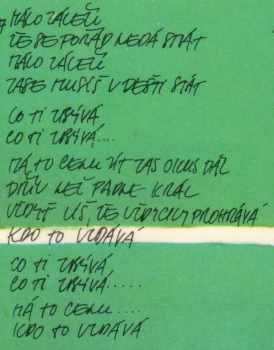 MÁLO ZÁLEŽÍ
ŽE SE POŘÁD NEDÁ SMÁT
MÁLO ZÁLEŽÍ
ZASE MUSÍŠ V DEŠTI STÁT
CO TI ZBÝVÁ
CO TI ZBÝVÁ....
MÁ TO CENU JÍT ZAS O KUS DÁL
DŘÍV NEŽ PADNE KRÁL
VŽDYŤ VÍŠ, ŽE VŽDYCKY PROHRÁVÁ
KDO TO VZDÁVÁ
CO TI ZBÝVÁ
CO TI ZBÝVÁ.....
MÁ TO CENU....
KDO TO VZDÁVÁ